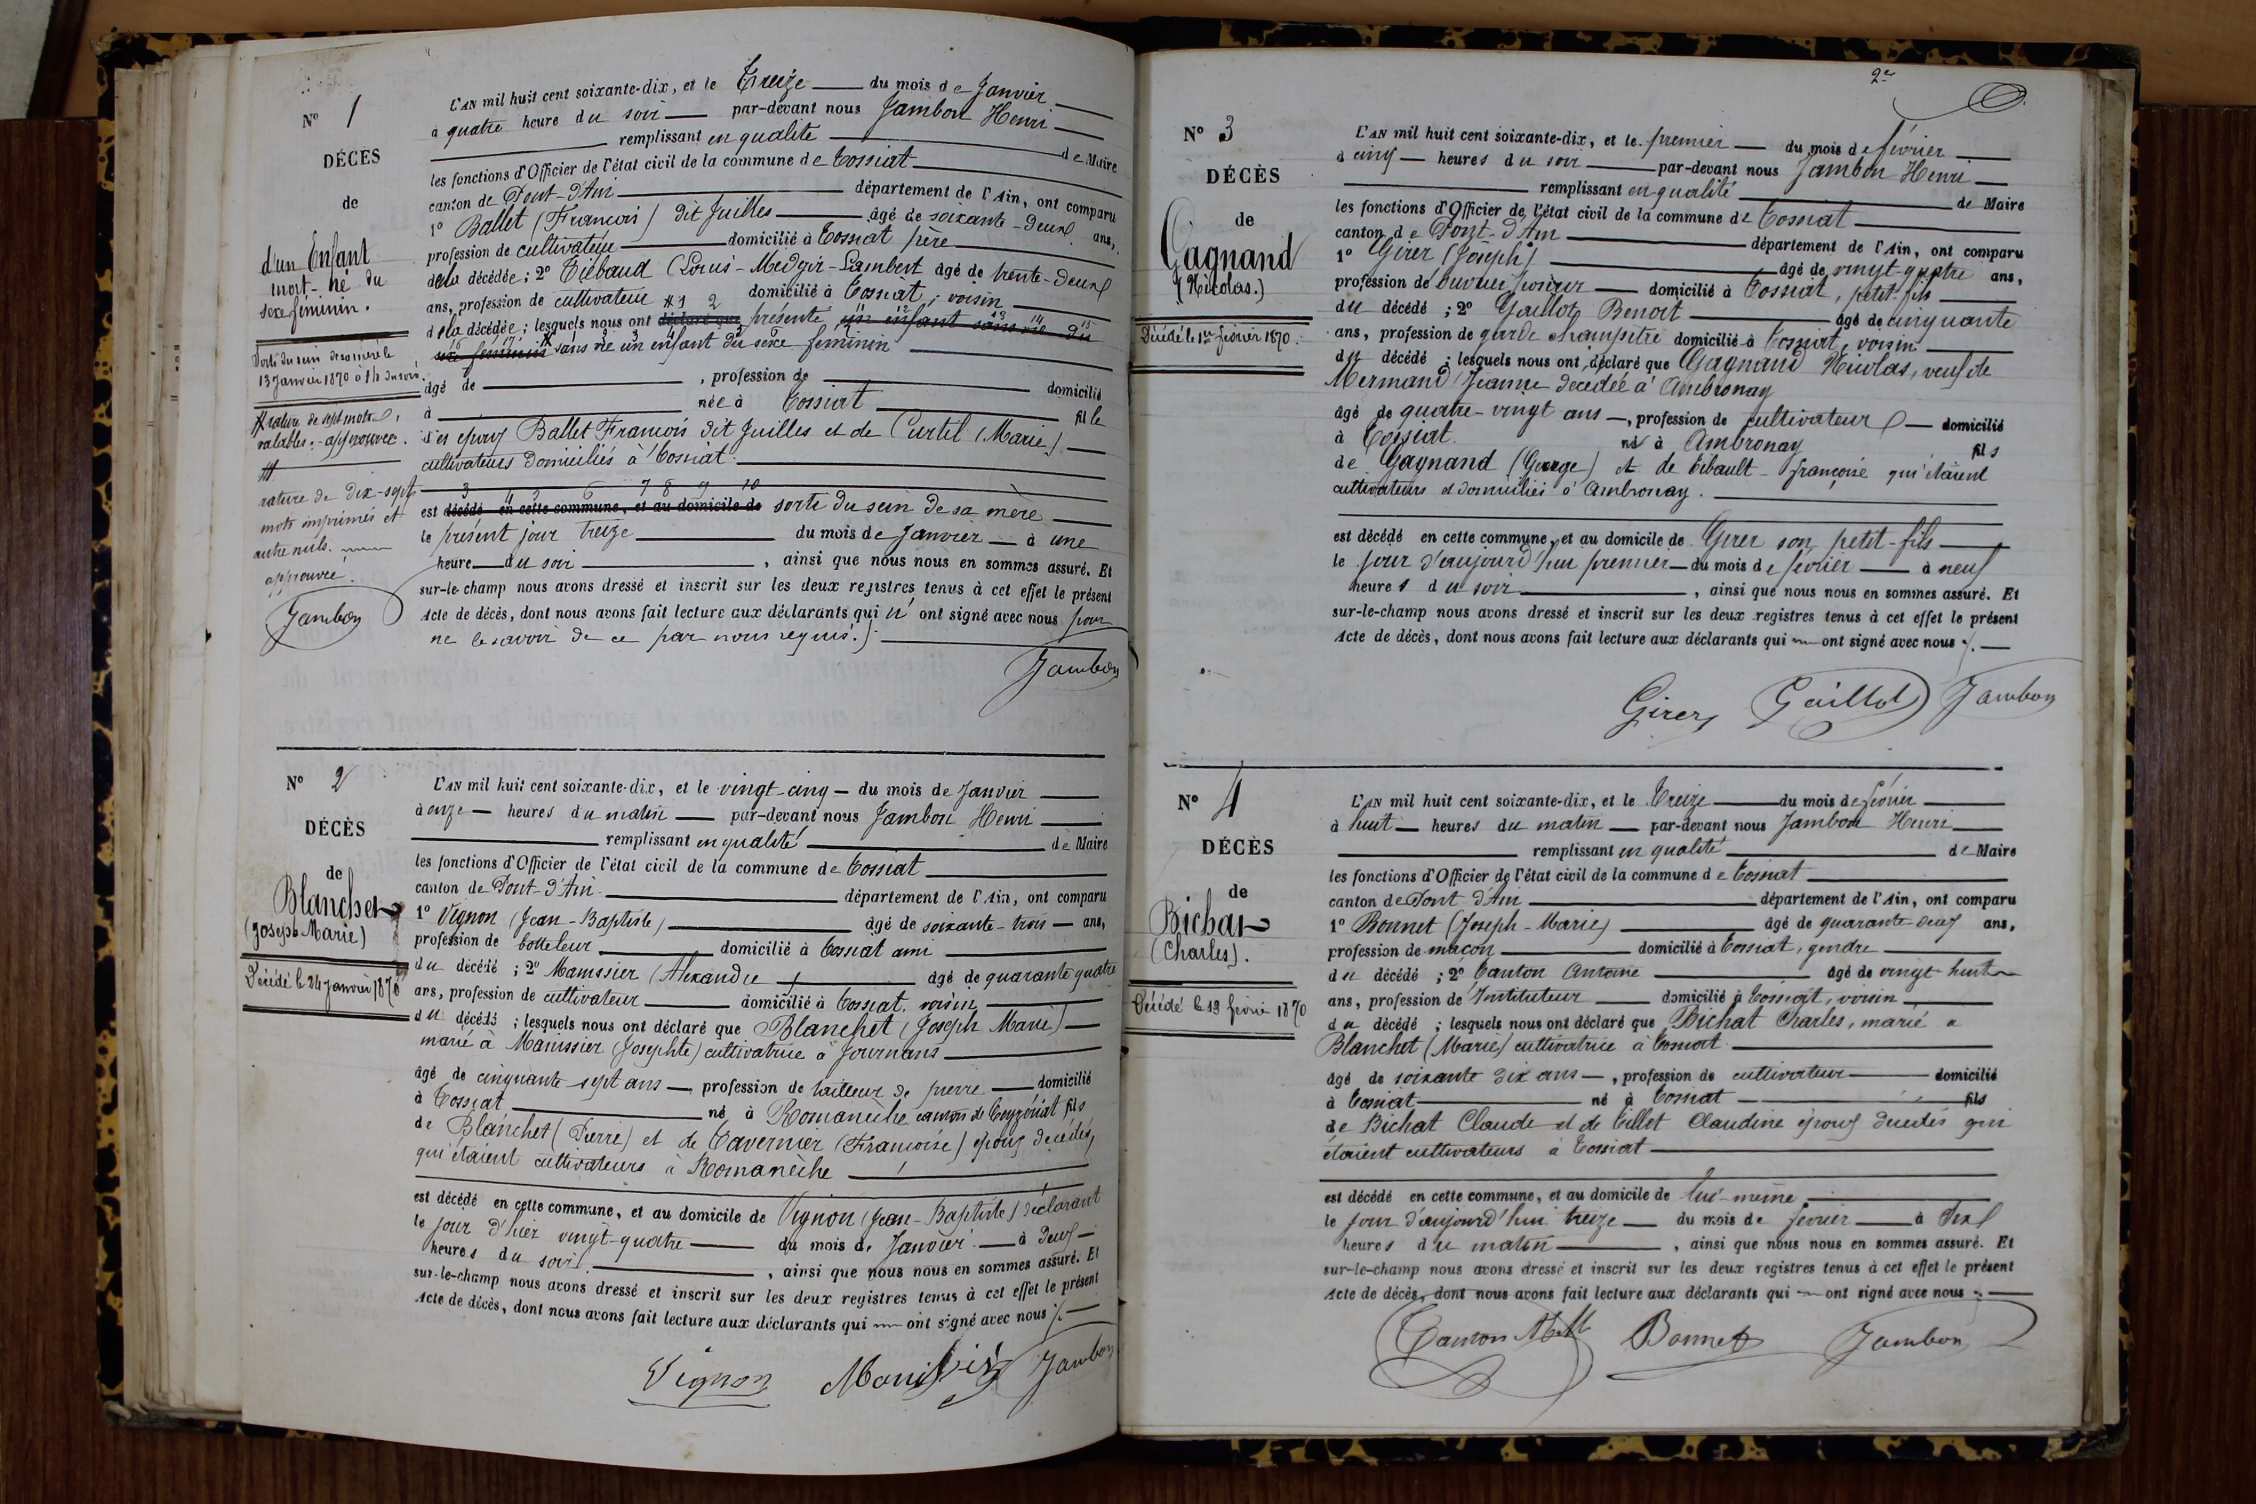 N° 1
DÉCÈS
de
d'un Enfant
mort-né du
sexe féminin.
Sorti du sein de sa mère le
13 Janvier 1870 à 1h du soir.
rature de sept mots
valables. approuvée.
rature de dix-sept
mots imprimés et
autre nuls.
approuvée.
Jambon
L'AN mil huit cent soixante-dix, et le Treize du mois de Janvier
à quatre heure du soir par-devant nous Jambon Henri
remplissant en qualité de Maire
les fonctions d'Officier de l'état civil de la commune de Tossiat
canton de Pont-d'Ain département de l'Ain, ont comparu
1° Ballet (François) dit Juilles âgé de soixante-deux ans,
profession de cultivateur domicilié à Tossiat père
de la décédée; 2° Tiébaud (Louis-Medgir-Lambert âgé de trente-deux
ans, profession de cultivateur #1 2 domicilié à Tossiat, voisin
de la décédée; lesquels nous ont déclaré que présenté un enfant sans vie du
sexe féminin sans vie un enfant du sexe féminin
âgé de , profession de domicilié
à née à Tossiat fille
d'en époux Ballet François dit Juilles et de Curtil (Marie)
cultivateurs domiciliés à Tossiat.
3 4 5 6 7 8 9 10
est décédé en cette commune, et au domicile de sorti du sein de sa mère
le présent jour treize du mois de Janvier à une
heure du soir , ainsi que nous nous en sommes assuré. Et
sur-le-champ nous avons dressé et inscrit sur les deux registres tenus à cet effet le présent
Acte de décès, dont nous avons fait lecture aux déclarants qui n' ont signé avec nous pour
ne le savoir de ce par nous requis.
Jambon
N° 2
DÉCÈS
de
Blanchet
(Joseph Marie)
Décédé le 24 Janvier 1870
L'AN mil huit cent soixante-dix, et le vingt-cinq du mois de Janvier
à onze heures du matin par-devant nous Jambon Henri
remplissant en qualité de Maire
les fonctions d'Officier de l'état civil de la commune de Tossiat
canton de Pont-d'Ain département de l'Ain, ont comparu
1° Vignon (Jean-Baptiste) âgé de soixante-trois ans,
profession de botteleur domicilié à Tossiat ami
du décédé; 2° Manissier (Alexandre) âgé de quarante quatre
ans, profession de cultivateur domicilié à Tossiat, voisin
du décédé; lesquels nous ont déclaré que Blanchet (Joseph Marie)
marié à Manissier (Josephte) cultivatrice à Journans
âgé de cinquante sept ans profession de tailleur de pierre domicilié
à Tossiat né à Romanèche canton de Ceyzériat fils
de Blanchet (Pierre) et de Tavernier (Françoise) époux décédés,
qui étaient cultivateurs à Romanèche
est décédé en cette commune, et au domicile de Vignon (Jean-Baptiste) déclarant
le jour d'hier vingt-quatre du mois de Janvier à deux
heures du soir , ainsi que nous nous en sommes assuré. Et
sur-le-champ nous avons dressé et inscrit sur les deux registres tenus à cet effet le présent
Acte de décès, dont nous avons fait lecture aux déclarants qui ont signé avec nous
Vignon Manissier Jambon
2e
N° 3
DÉCÈS
de
Gagnand
(Nicolas.)
Décédé le 1er février 1870.
L'AN mil huit cent soixante-dix, et le premier du mois de février
à cinq heures du soir par-devant nous Jambon Henri
remplissant en qualité de Maire
les fonctions d'Officier de l'état civil de la commune de Tossiat
canton de Pont-d'Ain département de l'Ain, ont comparu
1° Girer (Joseph) âgé de vingt-quatre ans,
profession de domicilié à Tossiat, petit-fils
du décédé; 2° Gaillot Benoit âgé de cinquante
ans, profession de garde champêtre domicilié à Tossiat, voisin
du décédé; lesquels nous ont déclaré que Gagnand Nicolas, veuf de
Mermand Jeanne décédée à Ambronay
âgé de quatre-vingt ans, profession de cultivateur domicilié
à Tossiat né à Ambronay fils
de Gagnand (George) et de Tibault françoise qui étaient
cultivateurs et domiciliés à Ambronay.
est décédé en cette commune, et au domicile de Girer son petit-fils
le jour d'aujourd'hui premier du mois de février à neuf
heures du soir , ainsi que nous nous en sommes assuré. Et
sur-le-champ nous avons dressé et inscrit sur les deux registres tenus à cet effet le présent
Acte de décès, dont nous avons fait lecture aux déclarants qui ont signé avec nous
Girer Gaillot Jambon
N° 4
DÉCÈS
de
Bichat
(Charles).
Décédé le 13 février 1870
L'AN mil huit cent soixante-dix, et le Treize du mois de février
à huit heures du matin par-devant nous Jambon Henri
remplissant en qualité de Maire
les fonctions d'Officier de l'état civil de la commune de Tossiat
canton de Pont d'Ain département de l'Ain, ont comparu
1° Bonnet (Joseph-Marie) âgé de quarante-deux ans,
profession de maçon domicilié à Tossiat, gendre
du décédé; 2° Canton Antoine âgé de vingt-huit
ans, profession de Instituteur domicilié à Tossiat, voisin
du décédé; lesquels nous ont déclaré que Bichat Charles, marié a
Blanchet (Marie) cultivatrice à Tossiat
âgé de soixante dix ans, profession de cultivateur domicilié
à Tossiat né à Tossiat fils
de Bichat Claude et de Tillot Claudine époux décédés qui
étaient cultivateurs à Tossiat
est décédé en cette commune, et au domicile de lui-même
le jour d'aujourd'hui treize du mois de février à six
heures du matin , ainsi que nous nous en sommes assuré. Et
sur-le-champ nous avons dressé et inscrit sur les deux registres tenus à cet effet le présent
Acte de décès, dont nous avons fait lecture aux déclarants qui ont signé avec nous
Canton Bonnet Jambon